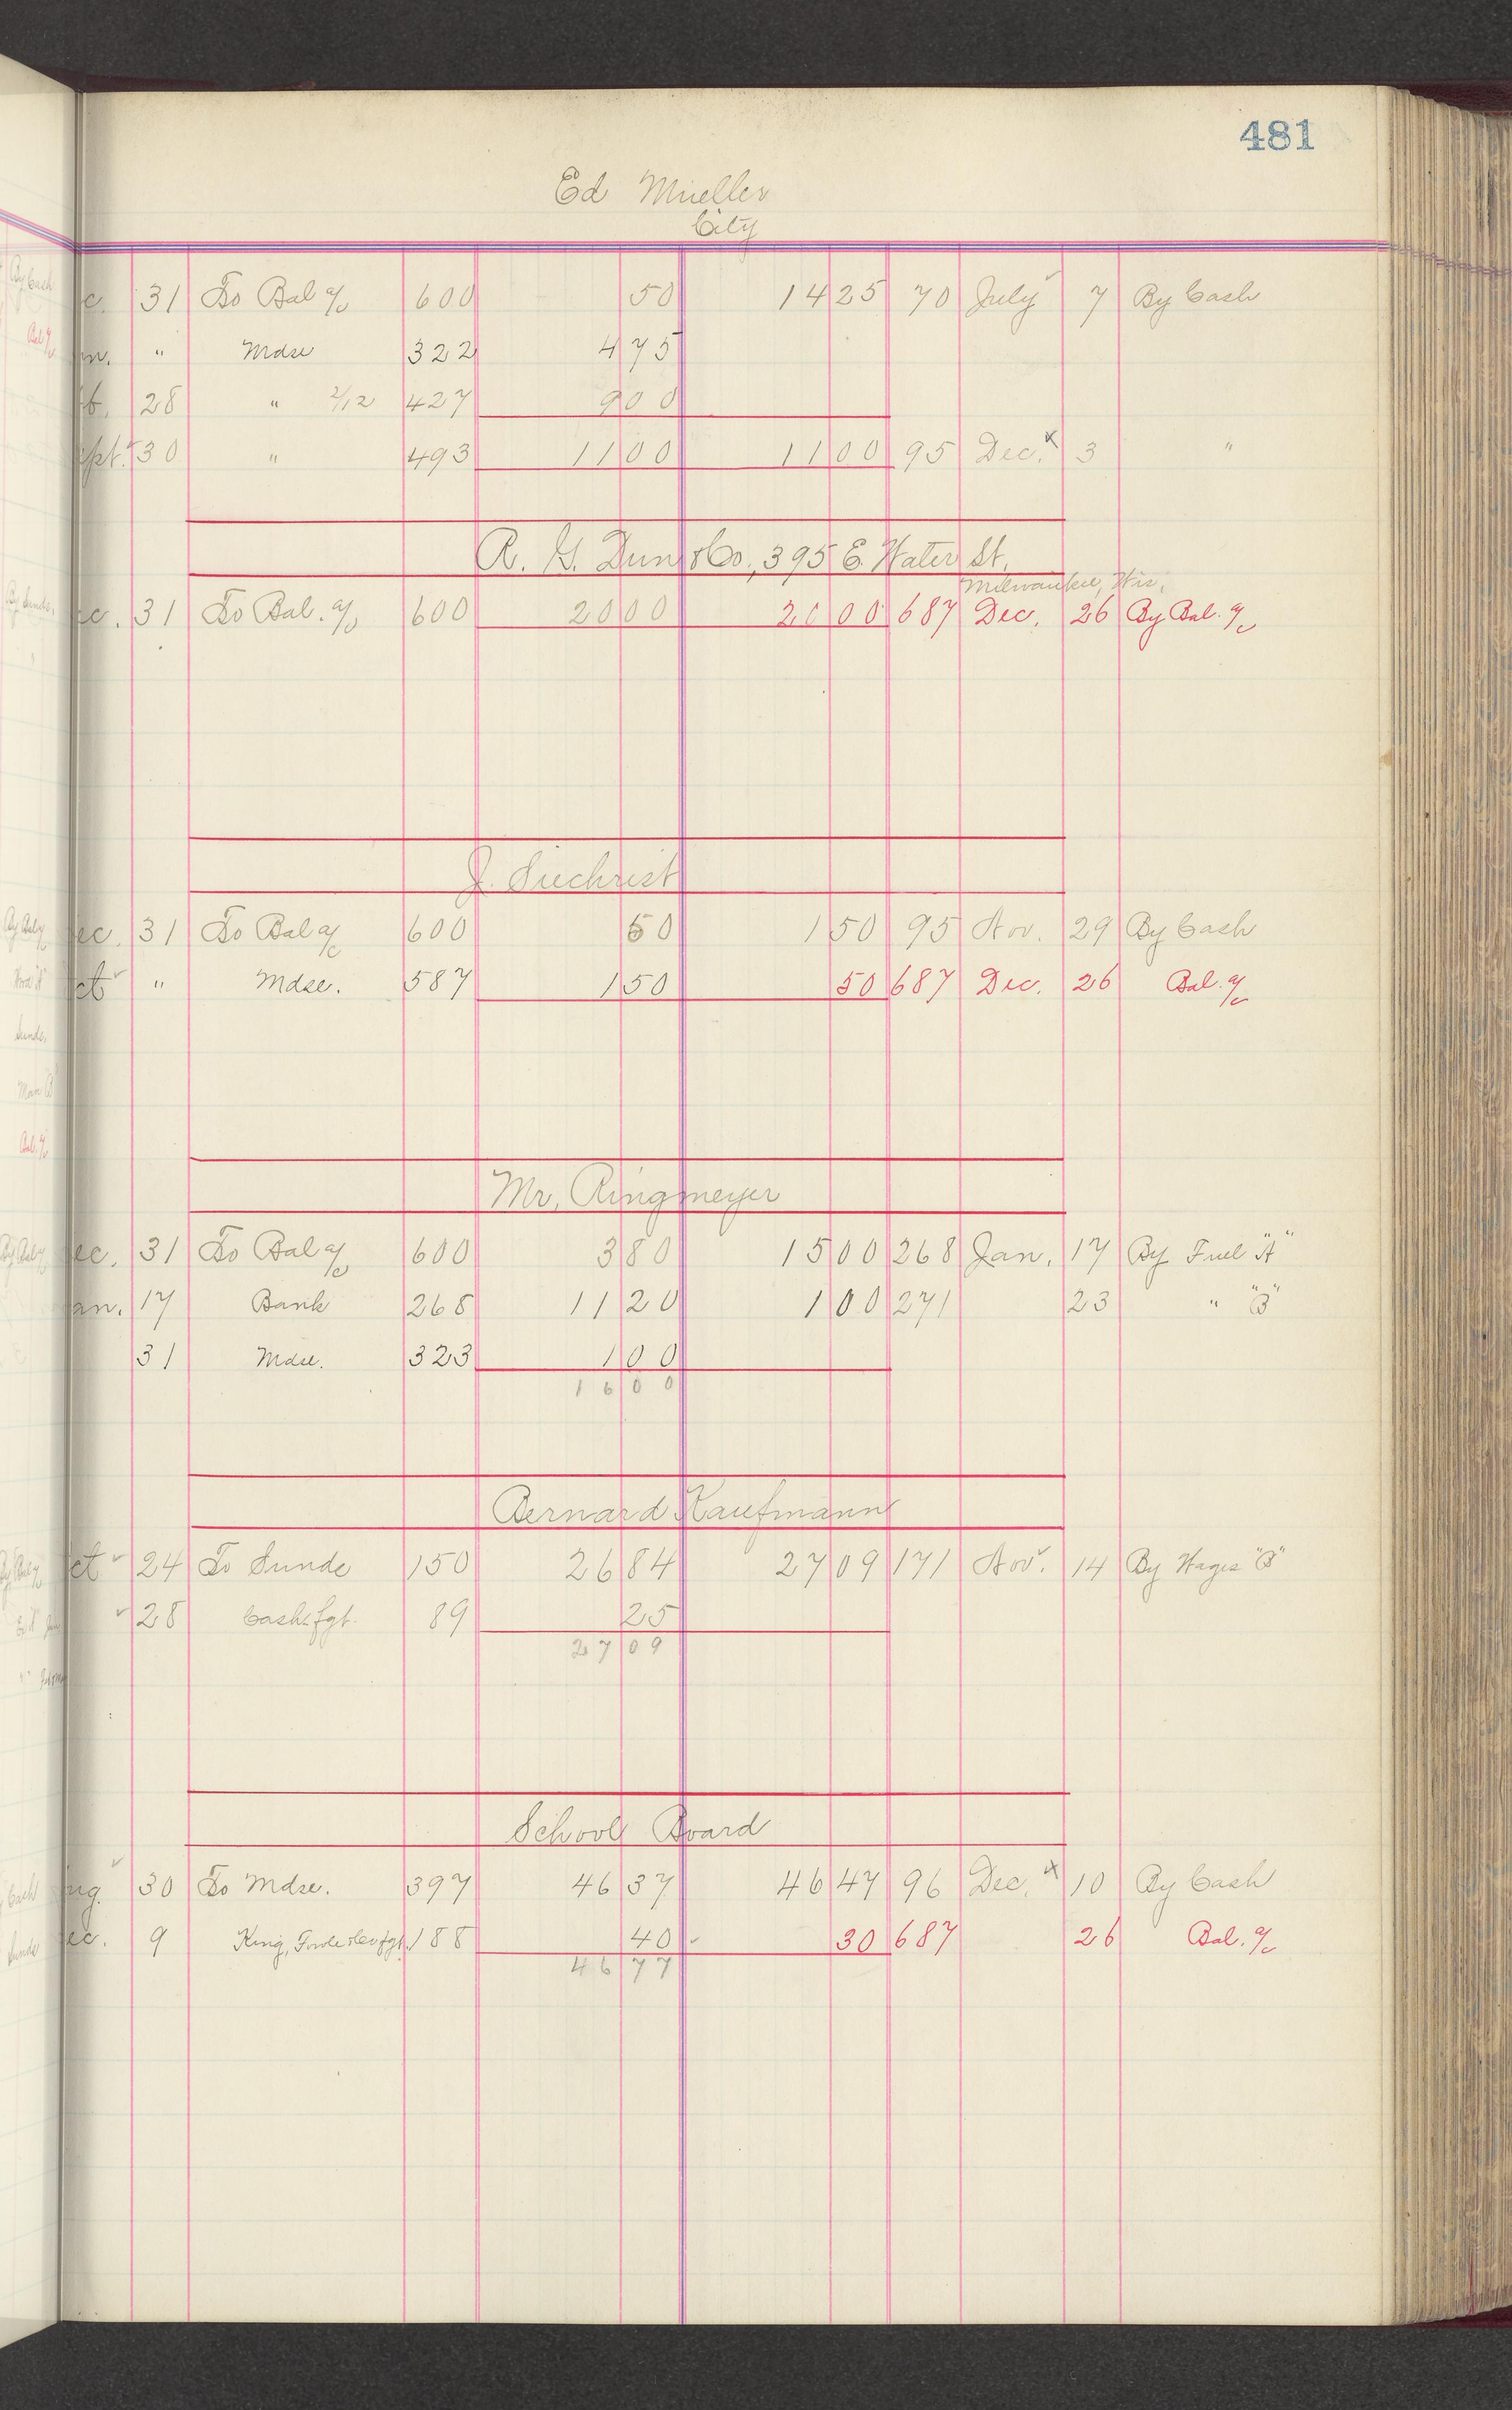 481
Ed Mueller
City
c. 31 To Bal a/c 600 50 1425 70 July 7 By Cash
n. " Mdse 322 475
b. 28 " 2/12 427 900
pt. 30 " 493 1100 1100 95 Dec. 3 "
R. G. Dun & Co., 395 E. Water St.
Milwaukee, Wis.
ec. 31 To Bal. a/c 600 2000 2000 687 Dec. 26 By Bal. a/c
J. Siechrist
ec. 31 To Bal a/c 600 50 150 95 Nov. 29 By Cash
ct " Mdse. 587 150 50 687 Dec. 26 Bal. a/c
Mr. Ringmeyer
ec. 31 To Bal a/c 600 380 1500 268 Jan. 17 By Fuel "A"
an. 17 Bank 268 1120 100 271 23 " "B"
31 Mdse. 323 100
1600
Bernard Kaufmann
ct 24 To Sunds 150 2684 2709 171 Nov. 14 By Wages "B"
28 Cash fgt. 89 25
2709
School Board
ug. 30 To Mdse. 397 4637 4647 96 Dec. 10 By Cash
ec. 9 King, fgt. 188 40 30 687 26 Bal. a/c
4677